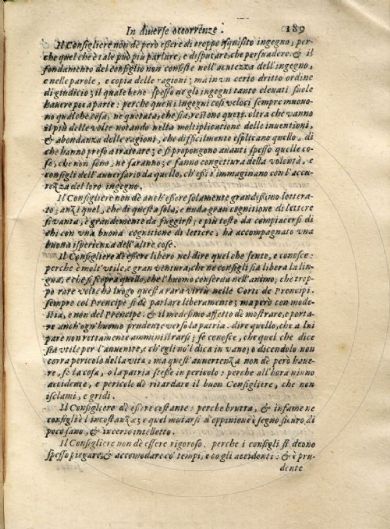 In diverse occorrenze. 189
Il Consigliere non dè però essere di troppo isquisito ingegno, per-
che quel che è tale può più parlare, e disputare, che persuadere: & il
fondamento del consiglio non consiste nell'acutezza dell'ingegno,
e nelle parole, e copia delle ragioni; ma in un certo dritto ordine
di giudicio; il quale ben spesso ne gli ingegni tanto elevati suole
haver poca parte: perche quei ingegni così veloci sempre muovo-
no qualche cosa, ne quotata, che sia, restono questi: oltra che vanno
il più delle volte notando nella moltiplicatione delle inventioni,
& abondanza delle ragioni, che difficilmente esplicano quello, di
che hanno preso à trattare: e si propongono avanti spesso quelle co-
se, che non sono, ne faranno; e fanno congettura della volontà, e
consigli dell'aversario da quello, ch'essi s'immaginano con l'acu-
tezza del loro ingegno.
Il Consigliere non dè anch'essere solamente grandissimo lettera-
to: anzi quel, che di questa sola, e nuda gran cognitione di lettere
si vanta, è grandemente da fuggirsi; e più tosto da compiacersi di
chi con una buona cognitione di lettere, hà accompagnato una
buona isperienza dell'altre cose.
Il Consigliere dè essere libero nel dire quel che sente, e conosce:
perche è molt'utile, e gran ventura, che ne consigli sia libera la lin-
gua, e che si scopra quello, che l'huomo conserva nell'animo; che trop
po rare volte hà luogo quest'a rara virtù nelle Corti de Prencipi,
sempre col Prencipe si dè parlare liberamente; ma però con mode-
stia, e non del Prencipe: & il medesimo affetto dè mostrare, e porta-
re anch'ogn'huomo prudente verso la patria. dire quello, che a lui
pare non rettamente amministrarsi; se conosce, che quel che dice
sia utile per l'avvenire, ch'egli no'l dica in vano; o dicendolo non
corra pericolo della vita, ma quest'avvertenza non dè però have-
re, se la cosa, o la patria stesse in pericolo: perche all'hora niuno
accidente, e pericolo dè ritardare il buon Consigliere, che non
esclami, e gridi.
Il Consigliere dè essere costante: perche brutta, & infame ne
consigli è l'incostanza; e quel mutarsi d'oppinione è segno sicuro di
poco sano, & incerto intelletto.
Il Consigliere non dè essere rigoroso. perche i consigli si deono
spesso piegare, & accomodare co' tempi, e co gli accidenti: & è pru-
dente